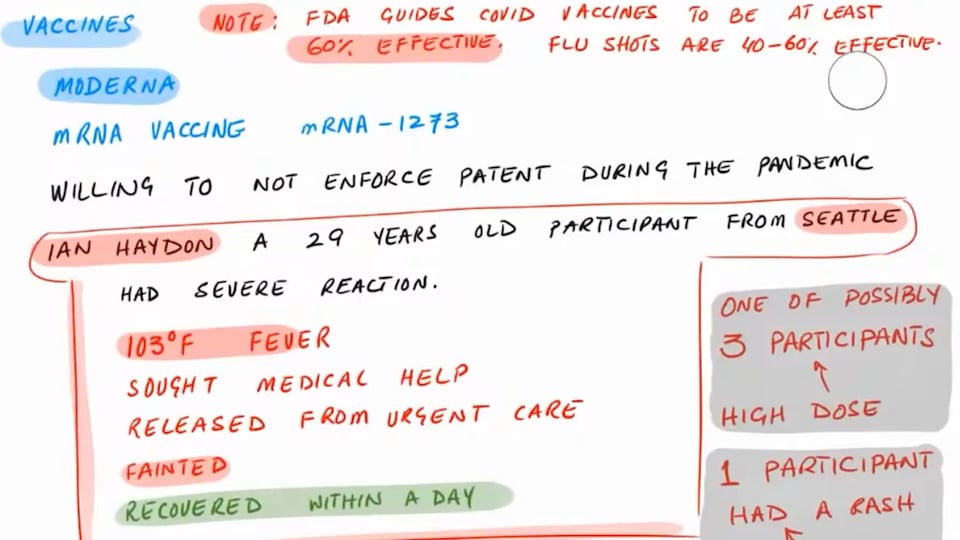 VACCINES
NOTE: FDA GUIDES COVID VACCINES TO BE AT LEAST
60% EFFECTIVE. FLU SHOTS ARE 40-60% EFFECTIVE.
MODERNA
mRNA VACCINE mRNA-1273
WILLING TO NOT ENFORCE PATENT DURING THE PANDEMIC
IAN HAYDON A 29 YEARS OLD PARTICIPANT FROM SEATTLE
HAD SEVERE REACTION.
103°F FEVER
SOUGHT MEDICAL HELP
RELEASED FROM URGENT CARE
FAINTED
RECOVERED WITHIN A DAY
ONE OF POSSIBLY
3 PARTICIPANTS
HIGH DOSE
1 PARTICIPANT
HAD A RASH